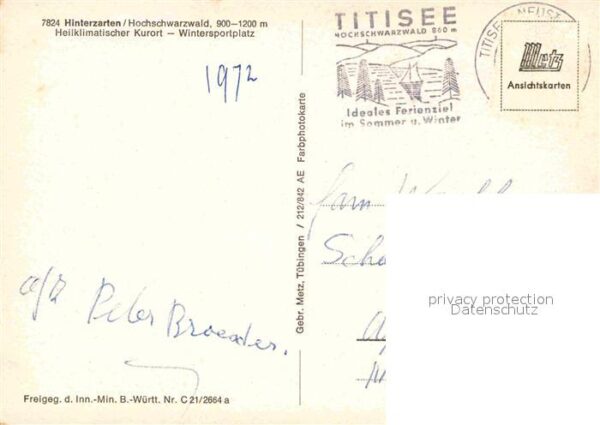 7824 Hinterzarten / Hochschwarzwald, 900—1200 m
Heilklimatischer Kurort — Wintersportplatz
1972
TITISEE
HOCHSCHWARZWALD 860 m
Ideales Ferienziel
im Sommer u. Winter
TITISEE-NEUST
Metz
Ansichtskarten
Gebr. Metz, Tübingen / 212/842 AE Farbphotokarte
Fam.
Peter Broeder.
privacy protection
Datenschutz
Freigeg. d. Inn.-Min. B.-Württ. Nr. C 21/2664 a